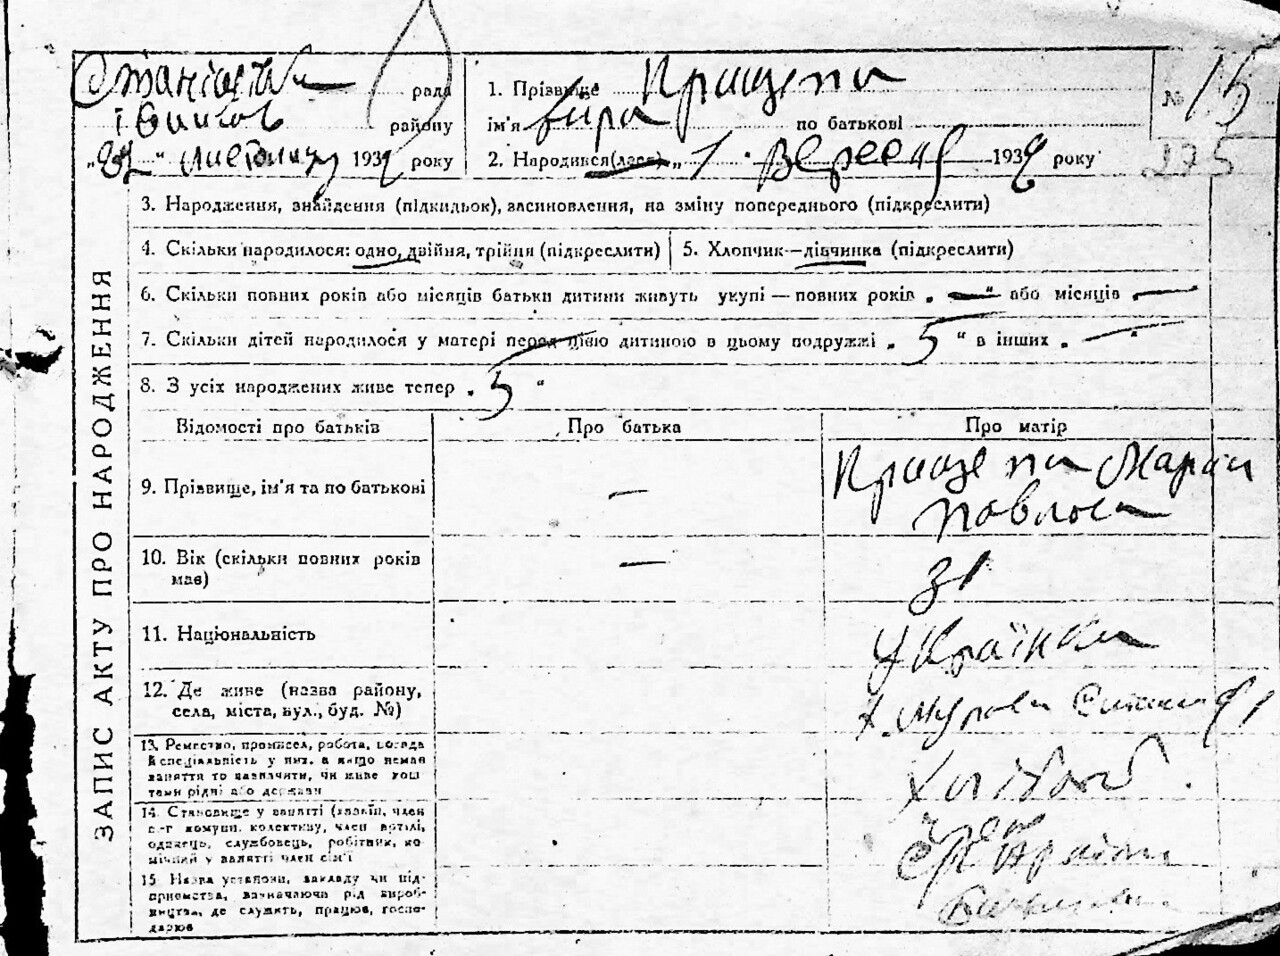 рада
району
"22" листопаду 1939 року
1. Прізвище Прищепа
ім'я Віра по батькові
2. Народився(лася) „1" Вересня 1939 року
№ 15
275
ЗАПИС АКТУ ПРО НАРОДЖЕННЯ
3. Народження, знайдення (підкидьок), засиновлення, на зміну попереднього (підкреслити)
4. Скільки народилося: одно, двійня, трійня (підкреслити)
5. Хлопчик—дівчинка (підкреслити)
6. Скільки повних років або місяців батьки дитини живуть укупі — повних років „ — " або місяців —
7. Скільки дітей народилося у матері перед цією дитиною в цьому подружжі „ 5 " в інших „ — "
8. З усіх народжених живе тепер „ 5 "
Відомості про батьків
Про батька
Про матір
9. Прізвище, ім'я та по батькові
—
Прищепа Марія
Павловна
10. Вік (скільки повних років
має)
—
31
11. Національність
Українка
12. Де живе (назва району,
села, міста, вул., буд. №)
13. Ремество, промисел, робота, посада
й спеціальність у них, а якщо немає
заняття то зазначити, чи живе кош
тами рідні або держави
14. Становище у занятті (хазяїн, член
с-г комуни, колективу, член артілі,
одинець, службовець, робітник, по
мічний у занятті член сім'ї
член
15. Назва установи, закладу чи під-
приємства, зазначаючи рід вироб-
ництва, де служить, працює, госпо-
дарює